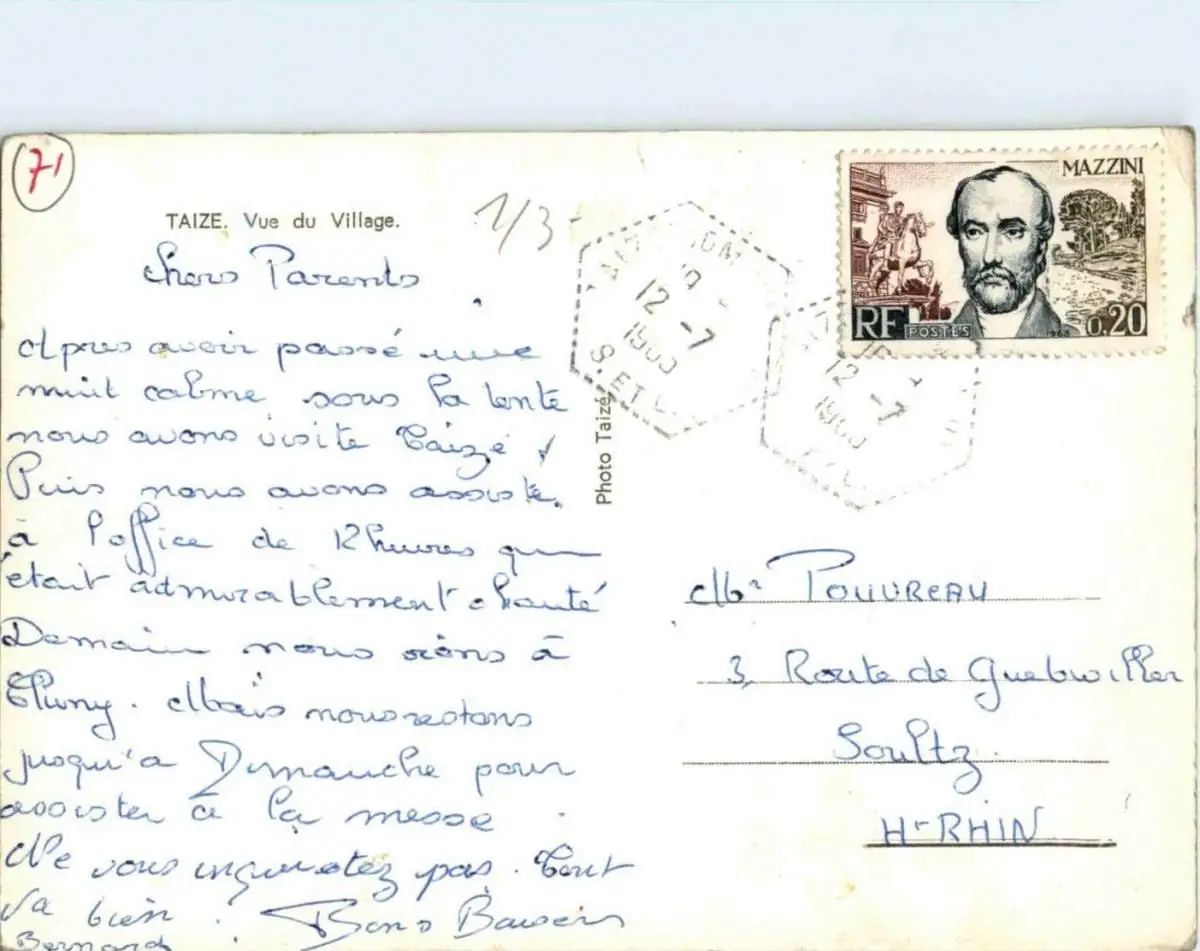 71
TAIZE. Vue du Village.
1/3
MAZZINI
RF POSTES 0,20
12 -7
S. ET L.
12 -7
Photo Taizé
chers Parents
Apres avoir passé une
nuit calme sous la tente
nous avons visite Taizé
Puis nous avons assisté
à l'office de 12 heures qui
était admirablement chanté
Demain nous irons à
Cluny. Mais nous restons
jusqu'a Dimanche pour
assister à la messe
Ne vous inquietez pas. Tout
va bien. Bons Baisers
Bernard
Mr POUVREAU
3, Route de Guebwiller
Soultz
Ht-RHIN